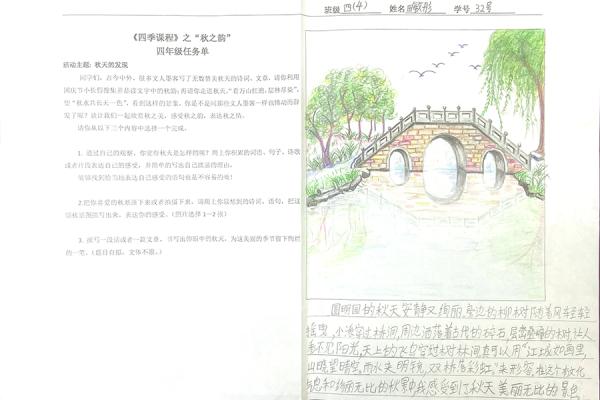 《四季课程》之“秋之韵”
四年级任务单
活动主题：秋天的发现
同学们，古今中外，很多文人墨客写了无数赞美秋天的诗词、文章，请你利用
国庆节小长假搜集并品读文字中的秋韵；再请你走进秋天，“看万山红遍，层林尽染”，
望“秋水共长天一色”，看到这样的景象，你是不是同那些文人墨客一样诗情
发了呢？请让我们一起欣赏秋之美，感受秋之韵，表达秋之情。
请你从以下三个内容中选择一个完成。
1. 通过自己的观察，你觉得秋天是怎样的呢？用上你积累的词语、句子、诗歌
或者片段表达自己的感受，并简单的写出自己感受的理由。
能够找到恰当地表达自己感受的语句也是不容易的哦！
2.把你喜爱的秋景画下来或者拍摄下来，请用上你想到的诗词、语句，把这
写出来，表达你的感受。（图片选择1-2张）
3. 撰写一段话或者一篇文章，书写出你眼中的秋天，为这美丽的季节留下绚烂
的一笔。（题目自拟，文体不限。）
班级 四(4) 姓名 学号 32号
圆明园的秋天安静又绚丽，旁边的柳树随着风轻轻
摇曳，小溪穿过桥洞，周边洒落着古代的碎石，层峦叠嶂的树，让人
看不见阳光，天上的飞鸟穿过树林间，真可以用“江城如画里，
山晓望晴空。雨水夹明镜，双桥落彩虹。”来形容，在这个文化
和绚丽无比的秋景中，我感受到了秋天美丽无比的景色